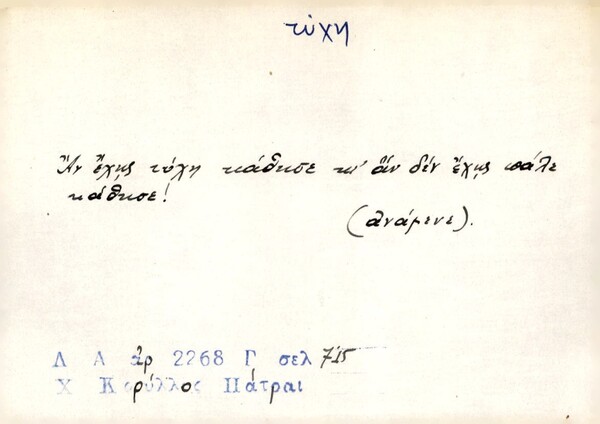 τύχη
Ἂν ἔχῃς τύχη κάθησε κι' ἂν δέν ἔχῃς πάλε
κάθησε!
(ἀνάμενε).
Λ Α ἀρ 2268 Γ σελ 715
Χ Κορύλλος Πάτραι